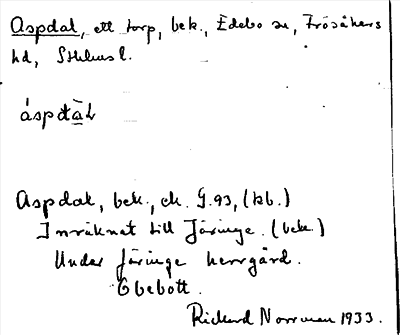 Aspdal, ett torp, bek., Edebo sn, Frösåkers
hd, Sthlms l.
áspdàL
Aspdal, bek., ek. G.93, (kb.)
Inräknat till Järinge. (bek.)
Under Järinge herrgård.
Obebott.
Rickard Norrman 1933.